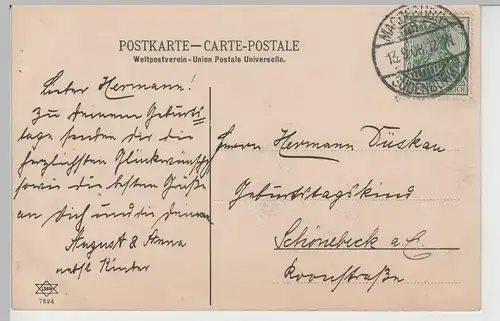 POSTKARTE — CARTE-POSTALE
Weltpostverein - Union Postale Universelle.
MAGDEBURG
13.9.08
SUDENBURG
REICH
Lieber Hermann!
Zu deinem Geburts
tage senden dir die
herzlichsten Glückwünsche
sowie die besten Grüße
an Dich und die deinen
August & Anna
nebst Kinder
Herrn Hermann Düskau
Geburtstagskind
Schönebeck a. E.
Roonstraße
7694